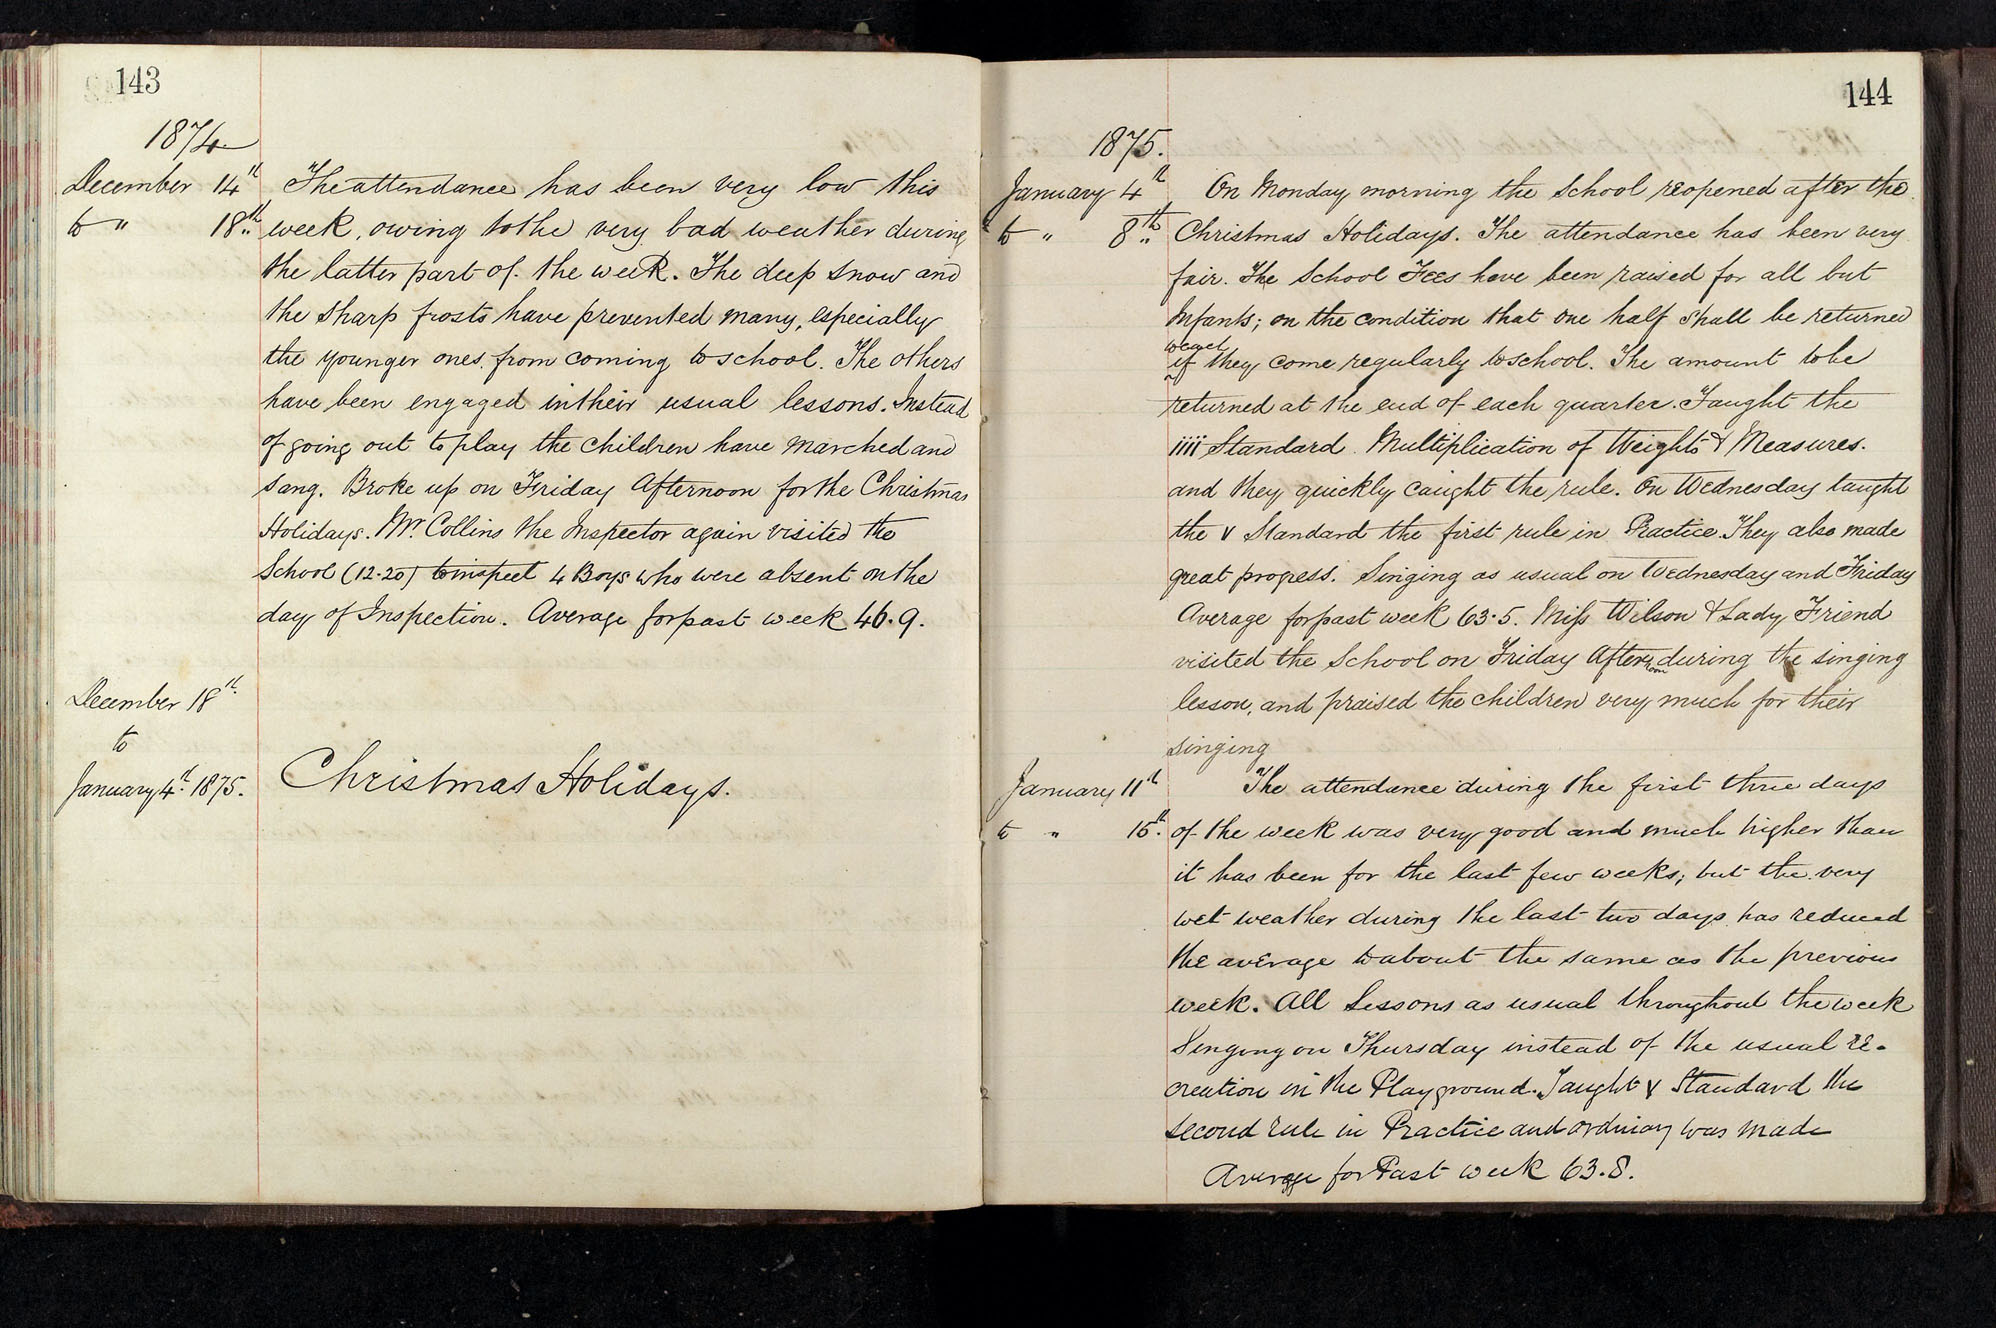 143
1874
December 14th The attendance has been very low this
to " 18th week, owing to the very bad weather during
the latter part of the week. The deep snow and
the sharp frosts have prevented many, especially
the younger ones from coming to school. The others
have been engaged in their usual lessons. Instead
of going out to play the children have marched and
sang. Broke up on Friday Afternoon for the Christmas
Holidays. Mr. Collins the Inspector again visited the
School (12.20) to inspect 4 Boys who were absent on the
day of Inspection. Average for past week 46.9.
December 18th
to
January 4th 1875. Christmas Holidays.
144
1875.
January 4th On Monday morning the School reopened after the
to " 8th Christmas Holidays. The attendance has been very
fair. The School Fees have been raised for all but
Infants; on the condition that one half shall be returned
if they come regularly to school. The amount to be
returned at the end of each quarter. Taught the
iiii Standard Multiplication of Weights & Measures.
and they quickly caught the rule. On Wednesday taught
the v Standard the first rule in Practice. They also made
great progess. Singing as usual on Wednesday and Friday
Average for past week 63.5. Miss Wilson & Lady Friend
visited the School on Friday Afternoon during the singing
lesson, and praised the children very much for their
singing
January 11th The attendance during the first three days
to " 15th. of the week was very good and much higher than
it has been for the last few weeks; but the very
wet weather during the last two days has reduced
the average to about the same as the previous
week. All Lessons as usual throughout the week
Singing on Thursday instead of the usual re-
creation in the Playground. Taught v Standard the
second rule in Practice and ordinary was made
Average for Past week 63.8.